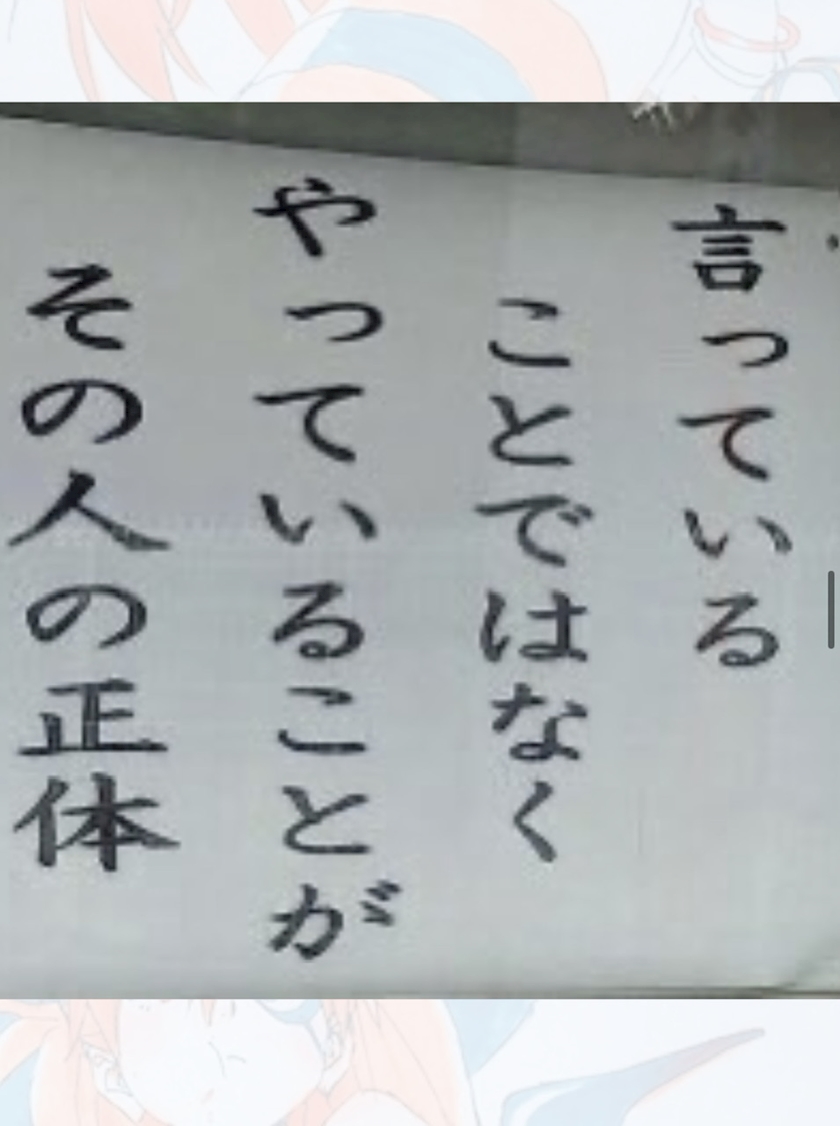 言っている
ことではなく
やっていることが
その人の正体